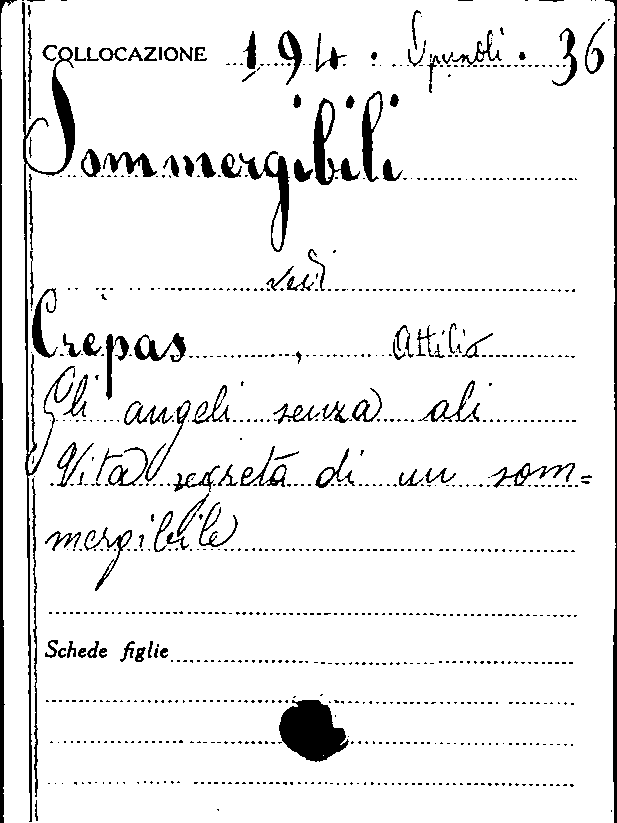 COLLOCAZIONE 194 · Spunoli · 36
Sommergibili
vedi
Crepas, Attilio
Gli angeli senza ali
Vita segreta di un som=
mergibile
Schede figlie